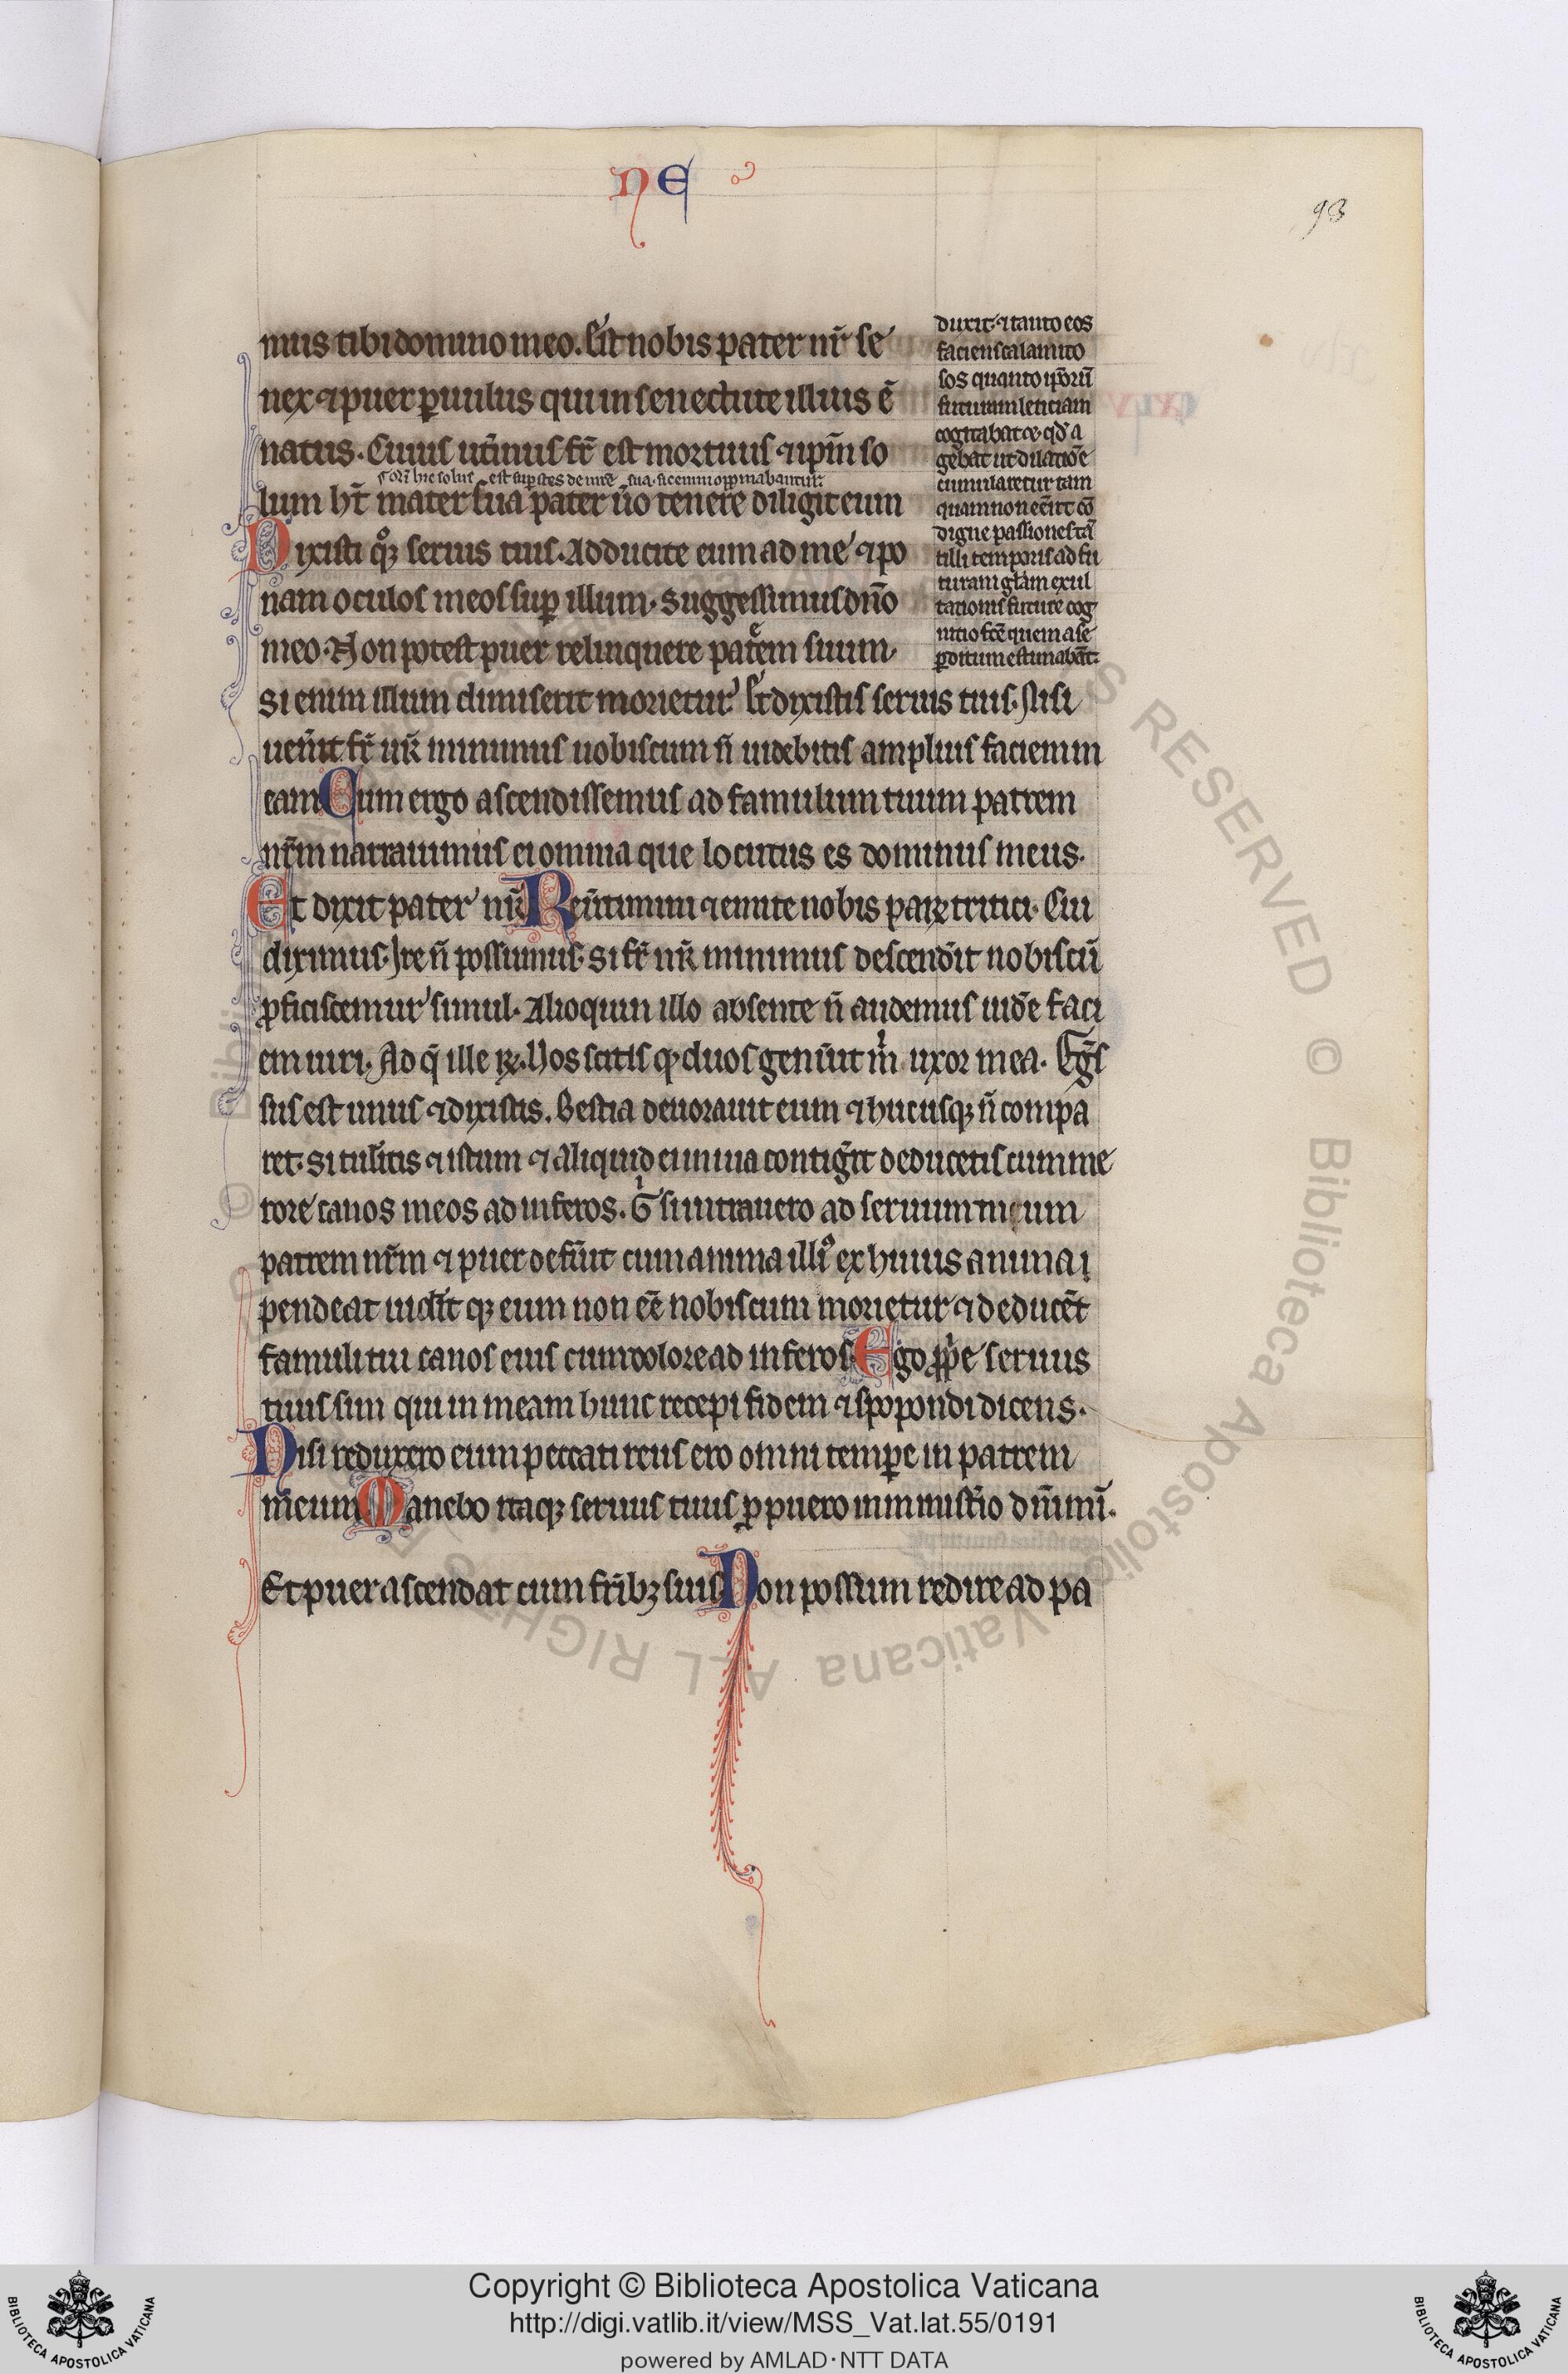 NE
93
mus tibi domino meo. Est nobis pater nr̄ se
nex ⁊ puer ꝑuulus qui in senectute illius ē
natus. Cuius ut̄inus fr̄ est mortuus ⁊ ip̄m so
lum ht̄ mater sua pater ū̄o tenere diligit eum
Dixisti qͦꝫ seruis tuis. Adducite eum ad me ⁊ po
nam oculos meos suꝑ illum. Suggessimus dn̄o
meo. Non potest puer relinquere patrem suum.
Si enim illum dimiserit morietur. Et dixistis seruis tuis. Nisi
uen̄it fr̄ ur̄ minimus uobiscum n̄ uidebitis amplius faciem m
eam Cum ergo ascendissemus ad famulum tuum patrem
nr̄m narrauimus ei omnia que locutus es dominus meus.
Et dixit pater nr̄ Reūtimini ⁊ emite nobis parꝝ tritici. Cui
diximus. Ire n̄ possumus. Si fr̄ nr̄ minimus descend̄it nobiscū
ꝓficiscemur simul. Alioquin illo absente n̄ audemus uid̄e faci
em uiri. Ad q̄ ille rꝝ. Vos scitis qꝫ duos genūit m̄ uxor mea. Eḡs
sus est unus ⁊ dixistis. Bestia deuorauit eum ⁊ hucusqꝫ n̄ compa
ret. Si tul̄itis ⁊ istum ⁊ aliquid ei in uia contiḡit deducetis cum me
rore canos meos ad inferos. Gͥ si intrauero ad seruum tuum
patrem nr̄m ⁊ puer defūit cum anima illiꝰ ex huius anima
pendeat uid̄it qꝫ eum non eē nobiscum morietur ⁊ deducēt
famuli tui canos eius cum dolore ad inferos. Ego ꝓpͥe seruus
tuus sim qui in meam hunc recepi fidem ⁊ spopondi dicens.
Nisi reduxero eum peccati reus ero omni temꝑe in patrem
meum Manebo itaqꝫ seruus tuus ꝓ puero in ministīo dn̄i mī.
Et puer ascendat cum fr̄ibꝫ suis Non possum redire ad pa
duxit. ⁊ tanto eos
faciens calamito
sos quanto ip̄orū
futuram leticiam
cogitabat ēe. qd̄ a
gebat ut dilatiōe
cumularetur tam
quam non eēnt cō
digne passiones tā
t illi temporis ad fu
turam gl̄am exul
tationis future cog
nitio fr̄e quem a se
ꝑditum estimabāt.
Copyright © Biblioteca Apostolica Vaticana
http://digi.vatlib.it/view/MSS_Vat.lat.55/0191
powered by AMLAD·NTT DATA
BIBLIOTECA APOSTOLICA VATICANA
BIBLIOTECA APOSTOLICA VATICANA